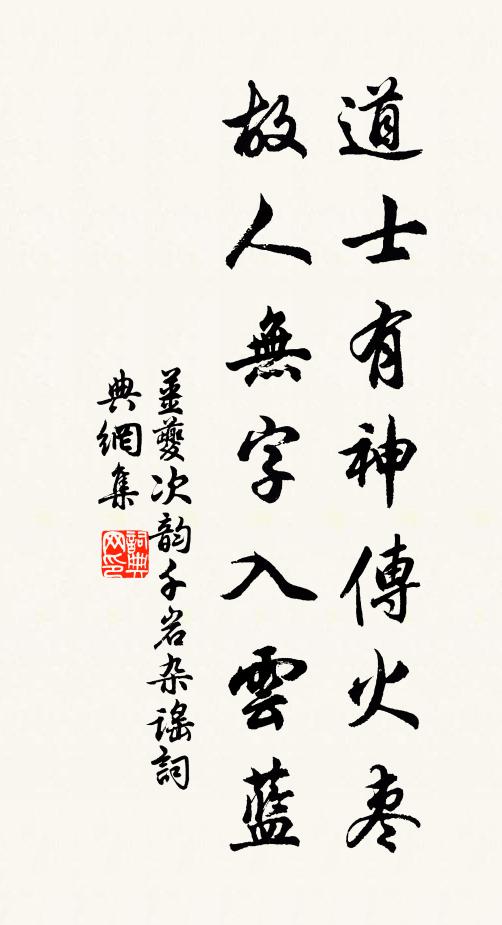 道士有神傳火枣
故人無字入雲藍
姜夔次韵千岩杂谣詞
典網集
詞典网印